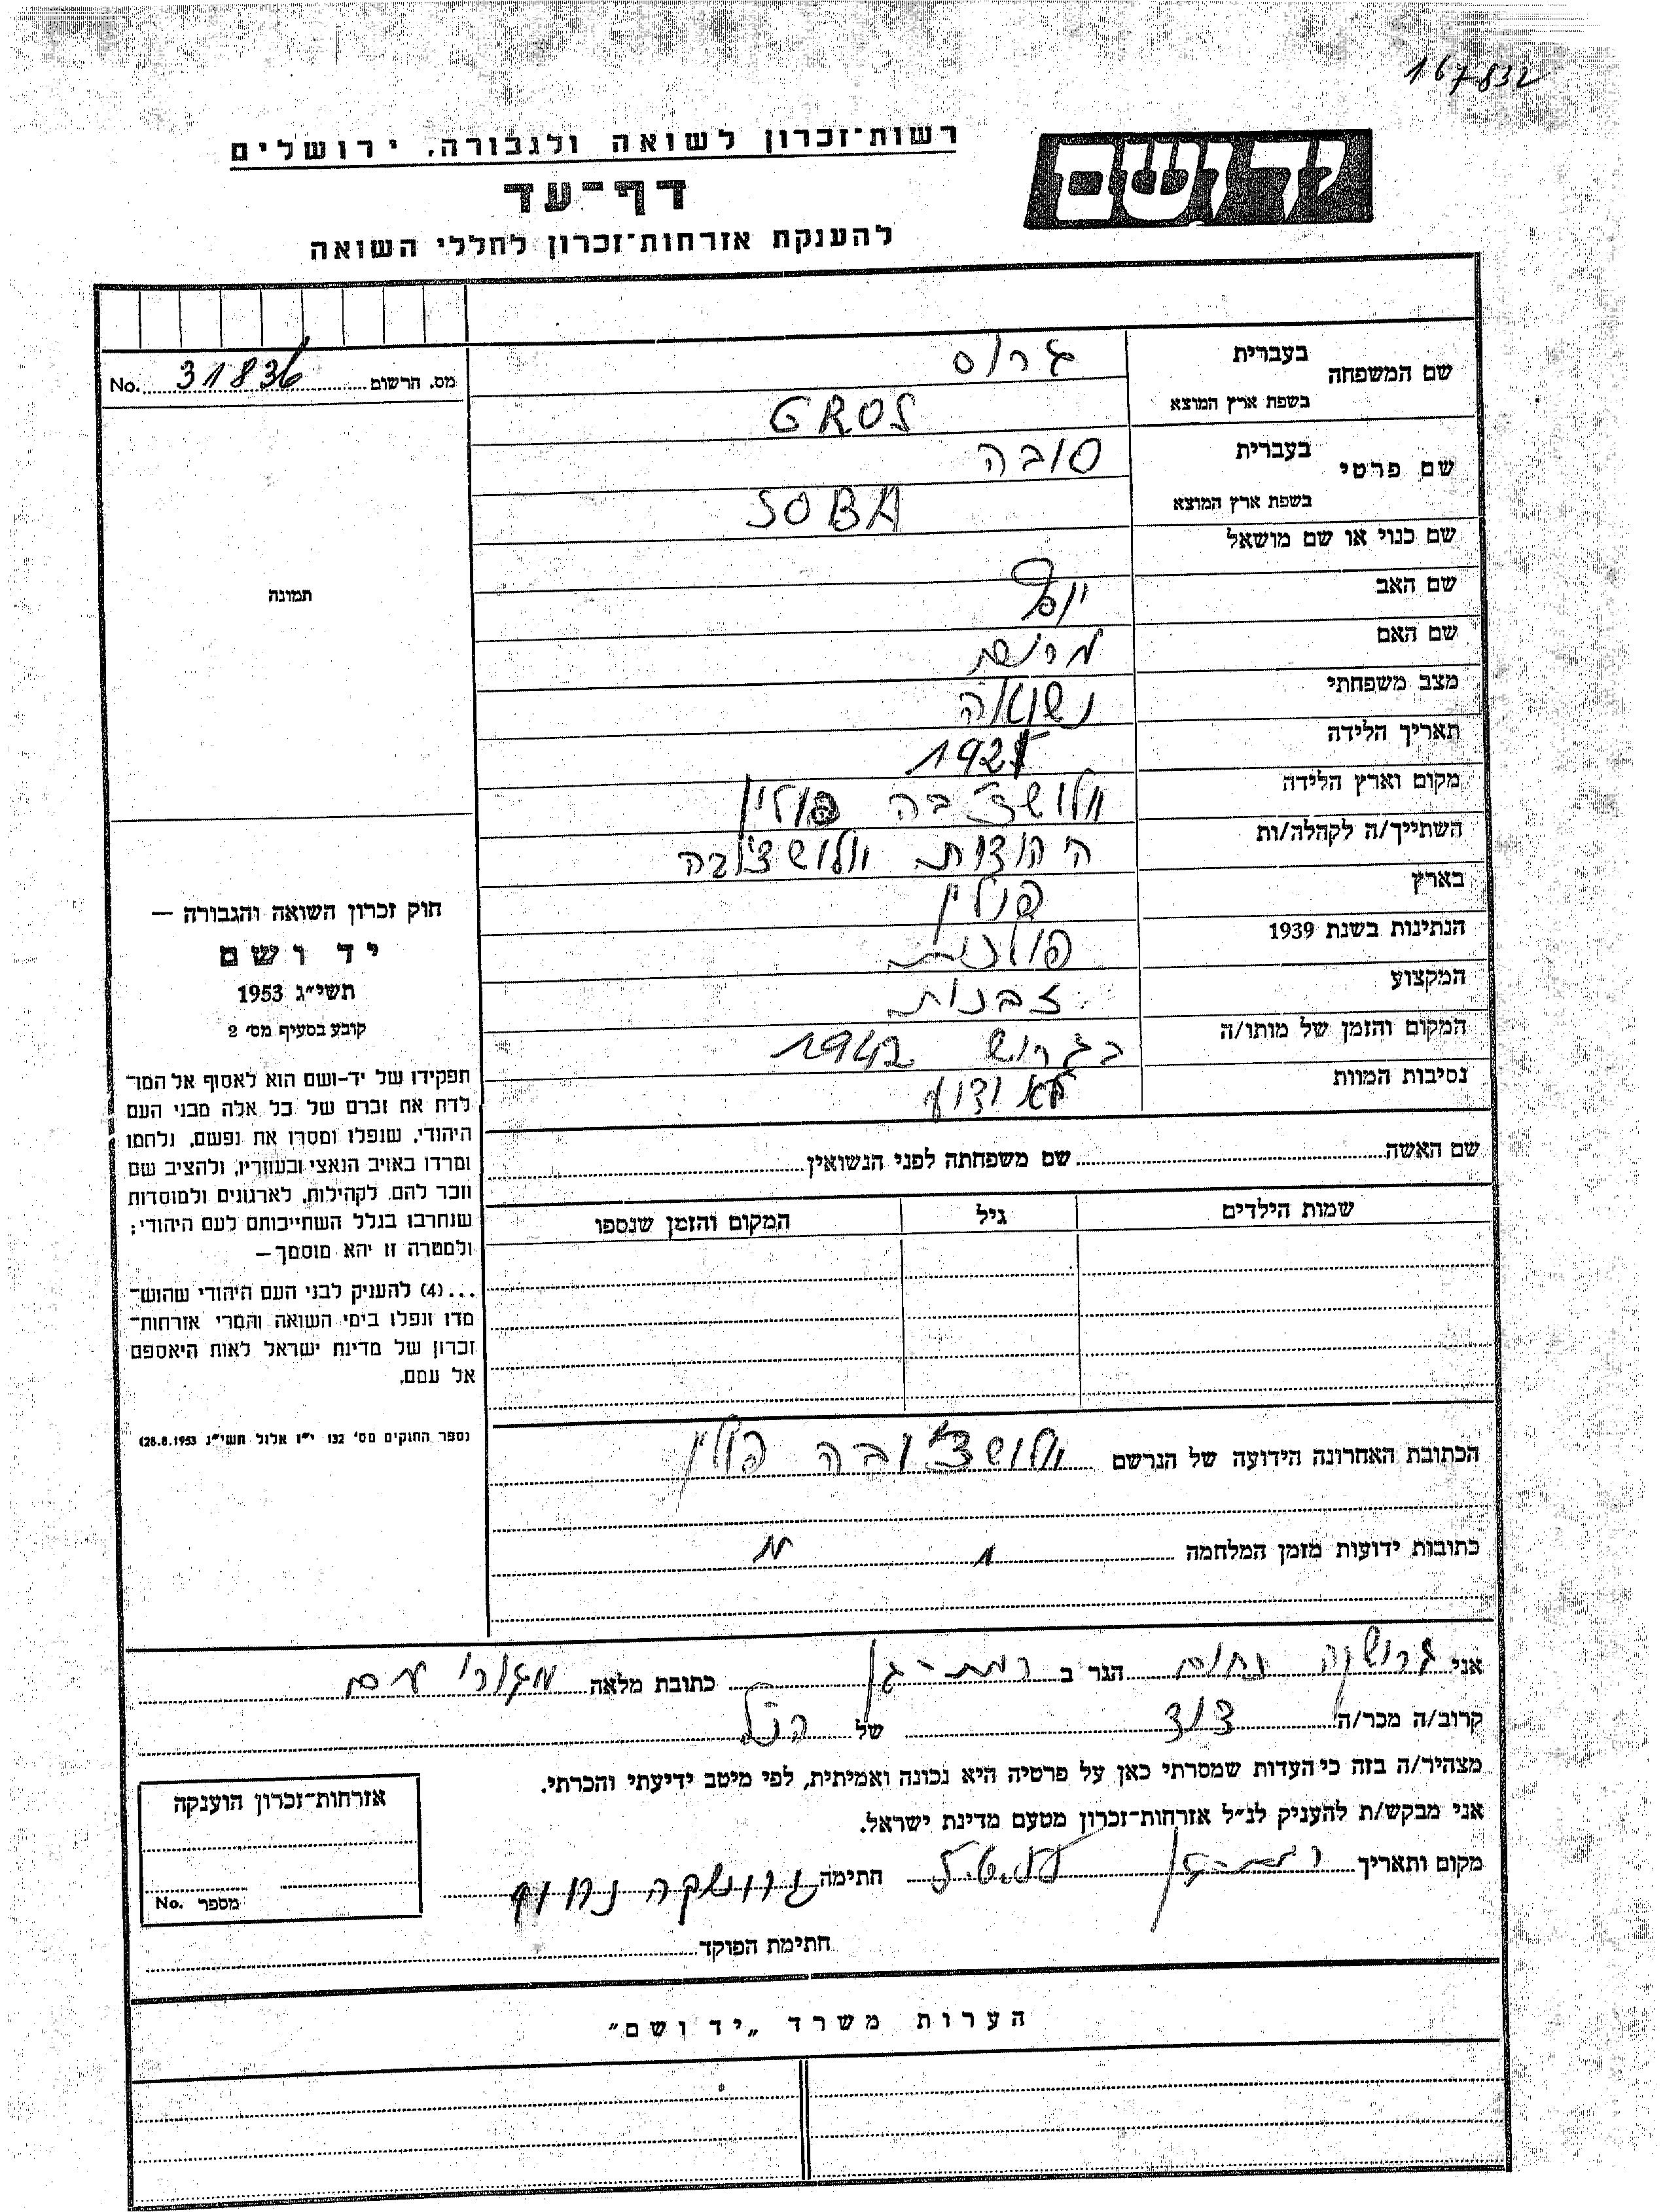 167832
רשות־זכרון לשואה ולגבורה, ירושלים
ידושם
דף־עד
להענקת אזרחות־זכרון לחללי השואה
מס. הרשום 31836 No.
שם המשפחה בעברית גרוס
בשפת ארץ המוצא GROS
שם פרטי בעברית סובה
בשפת ארץ המוצא SOBA
שם כנוי או שם מושאל
שם האב יוסף
שם האם
מצב משפחתי נשואה
תאריך הלידה
מקום וארץ הלידה פולין
השתייך/ה לקהלה/ות וולושצ'ובה
בארץ פולין
הנתינות בשנת 1939 פולנית
המקצוע זבנות
המקום והזמן של מותו/ה בגרוש 1942
נסיבות המוות לא ידוע
תמונה
חוק זכרון השואה והגבורה —
יד ושם
תשי״ג 1953
קובע בסעיף מס׳ 2
תפקידו של יד-ושם הוא לאסוף אל המו־
לדת את זכרם של כל אלה מבני העם
היהודי, שנפלו ומסרו את נפשם, נלחמו
ומרדו באויב הנאצי ובעוזריו, ולהציב שם
וזכר להם, לקהילות, לארגונים ולמוסדות
שנחרבו בגלל השתייכותם לעם היהודי;
ולמטרה זו יהא מוסמך—
...(4) להעניק לבני העם היהודי שהוש־
מדו ונפלו בימי השואה והמרי אזרחות־
זכרון של מדינת ישראל לאות היאספם
אל עמם.
(ספר החוקים מס׳ 132 י״ז אלול תשי״ג 28.8.1953)
שם האשה שם משפחתה לפני הנשואין
שמות הילדים גיל המקום והזמן שנספו
הכתובת האחרונה הידועה של הנרשם וולושצ'ובה פולין
כתובות ידועות מזמן המלחמה
אני גרושקה נחום הגר ב רמת-גן כתובת מלאה מגורי עם
קרוב/ה מכר/ה דוד של הנ"ל
מצהיר/ה בזה כי העדות שמסרתי כאן על פרטיה היא נכונה ואמיתית, לפי מיטב ידיעתי והכרתי.
אני מבקש/ת להעניק לנ״ל אזרחות־זכרון מטעם מדינת ישראל.
מקום ותאריך רמת-גן חתימה גרושקה נחום
אזרחות־זכרון הוענקה
מספר No.
חתימת הפוקד
הערות משרד „יד ושם״